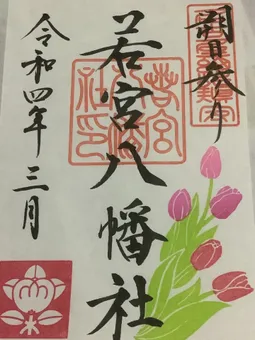 朔日参り
若宮八幡社
若宮八幡社印
令和四年三月